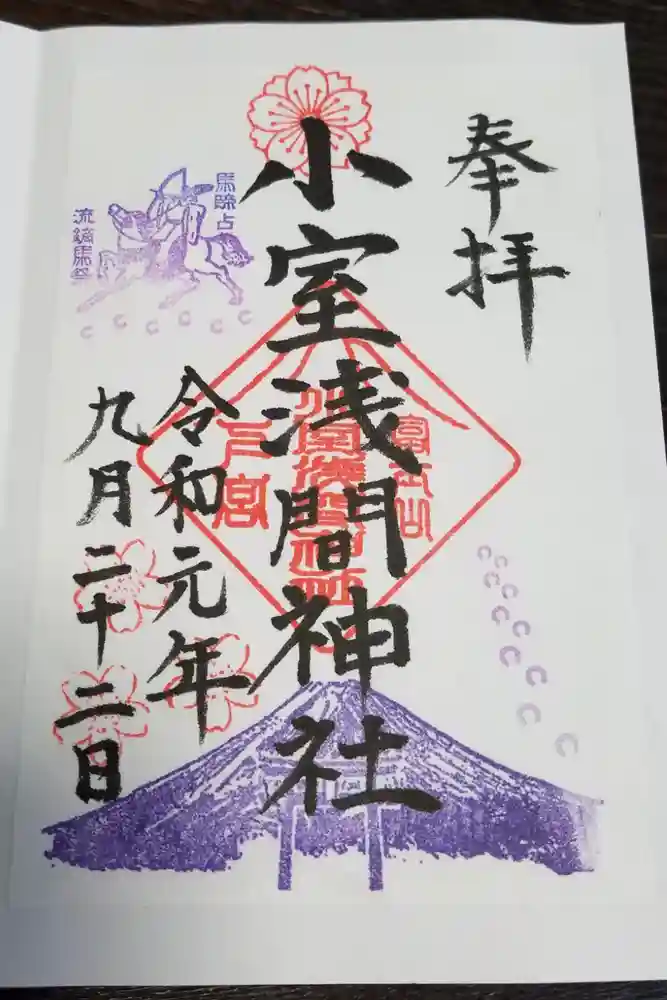 奉拝
小室浅間神社
富士山
小室浅間神社
下宮
令和元年
九月二十二日
馬蹄占
流鏑馬祭